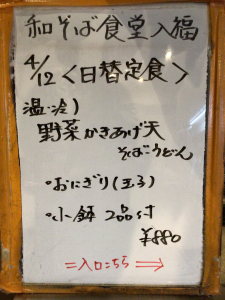 和そば食堂入福
4/12 <日替定食>
温・冷)
野菜かきあげ天
そば・うどん
・おにぎり(玉子)
・小鉢 2品付
¥880
=入口こちら⇒